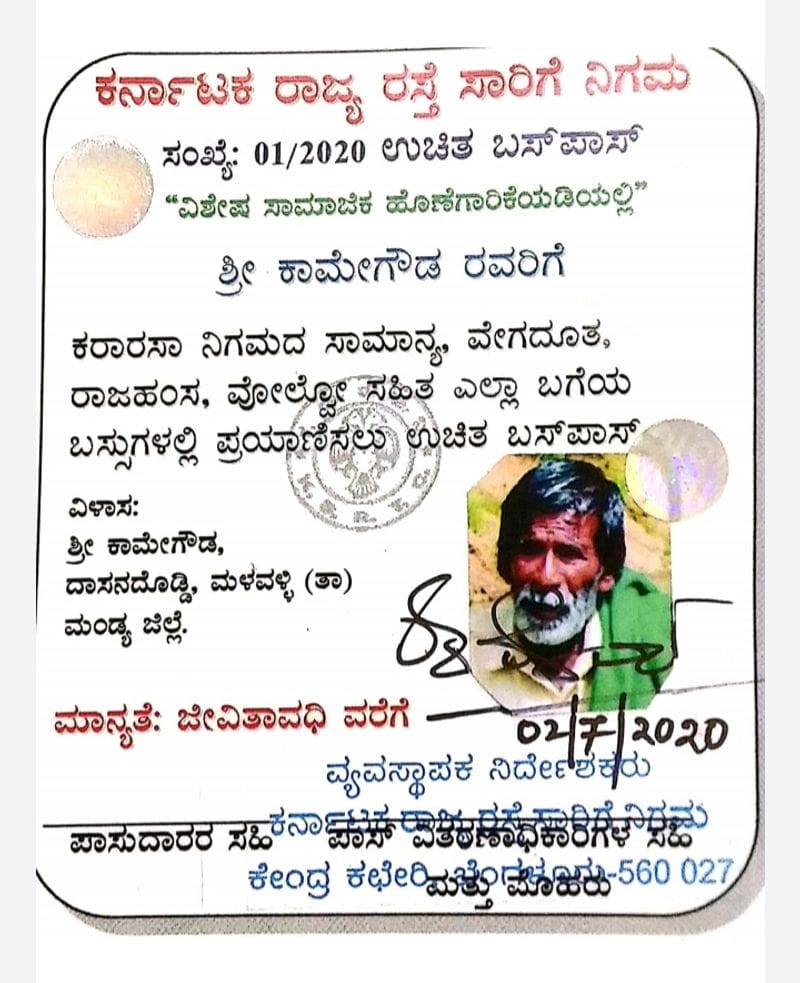 ಕರ್ನಾಟಕ ರಾಜ್ಯ ರಸ್ತೆ ಸಾರಿಗೆ ನಿಗಮ
ಸಂಖ್ಯೆ: 01/2020 ಉಚಿತ ಬಸ್‌ಪಾಸ್
“ವಿಶೇಷ ಸಾಮಾಜಿಕ ಹೊಣೆಗಾರಿಕೆಯಡಿಯಲ್ಲಿ”
ಶ್ರೀ ಕಾಮೇಗೌಡ ರವರಿಗೆ
ಕರಾರಸಾ ನಿಗಮದ ಸಾಮಾನ್ಯ, ವೇಗದೂತ,
ರಾಜಹಂಸ, ವೋಲ್ವೋ ಸಹಿತ ಎಲ್ಲಾ ಬಗೆಯ
ಬಸ್ಸುಗಳಲ್ಲಿ ಪ್ರಯಾಣಿಸಲು ಉಚಿತ ಬಸ್‌ಪಾಸ್
ವಿಳಾಸ:
ಶ್ರೀ ಕಾಮೇಗೌಡ,
ದಾಸನದೊಡ್ಡಿ, ಮಳವಳ್ಳಿ (ತಾ)
ಮಂಡ್ಯ ಜಿಲ್ಲೆ.
ಮಾನ್ಯತೆ: ಜೀವಿತಾವಧಿ ವರೆಗೆ
02/7/2020
ವ್ಯವಸ್ಥಾಪಕ ನಿರ್ದೇಶಕರು
ಕರ್ನಾಟಕ ರಾಜ್ಯ ರಸ್ತೆ ಸಾರಿಗೆ ನಿಗಮ
ಪಾಸುದಾರರ ಸಹಿ ಪಾಸ್ ವಿತರಣಾಧಿಕಾರಿಗಳ ಸಹಿ
ಕೇಂದ್ರ ಕಛೇರಿ, ಬೆಂಗಳೂರು-560 027
ಮತ್ತು ಮೊಹರು